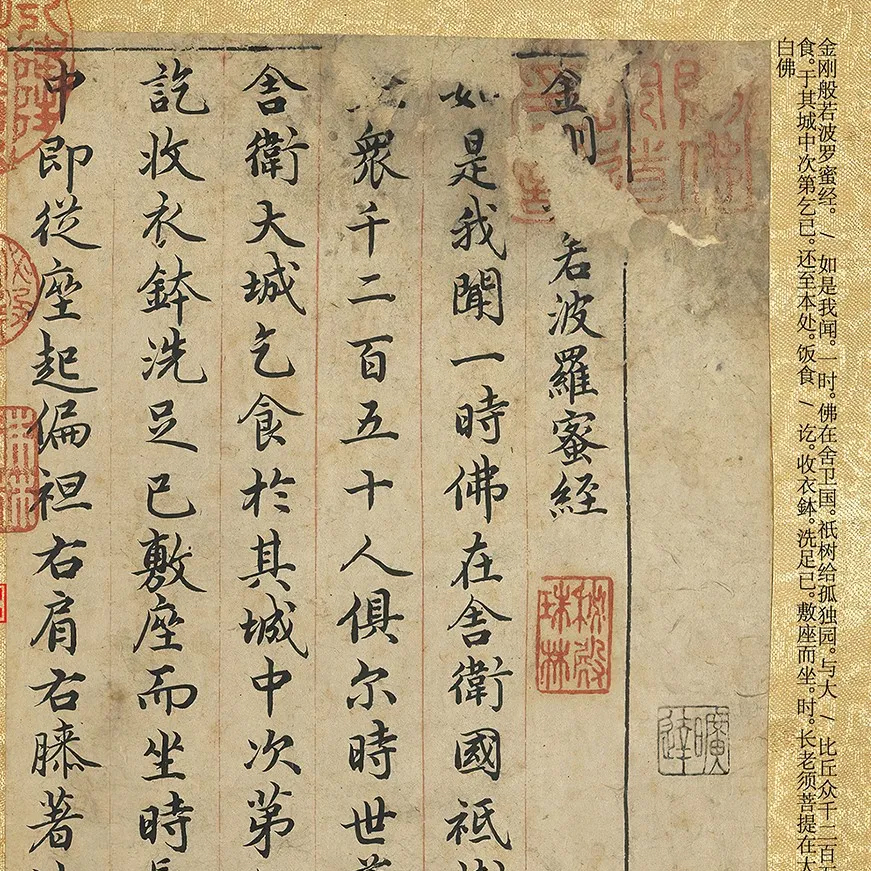 金刚般若波罗蜜经。 / 如是我闻。一时。佛在舍卫国。祇树给孤独园。与大 / 比丘众千二百
食。于其城中次第乞已。还至本处。饭食 / 讫。收衣鉢。洗足已。敷座而坐。时。长老须菩提在大
白佛
曠達
金若波羅蜜經
秘殿珠林
如是我聞一時佛在舍衛國祇
眾千二百五十人俱尔時世
舍衛大城乞食於其城中次第
訖收衣鉢洗足已敷座而坐時
中即從座起偏袒右肩右膝著